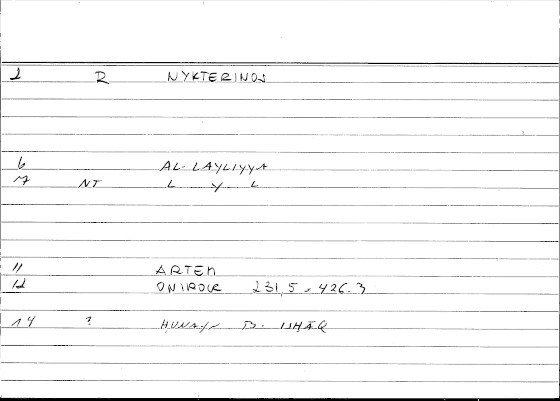 1 R NYKTERINOS
6 AL-LAYLIYYA
7 NT L Y L
11 ARTEM
12 ONIROCR 231,5 = 426.3
14 ? HUNAYN B. ISHĀQ